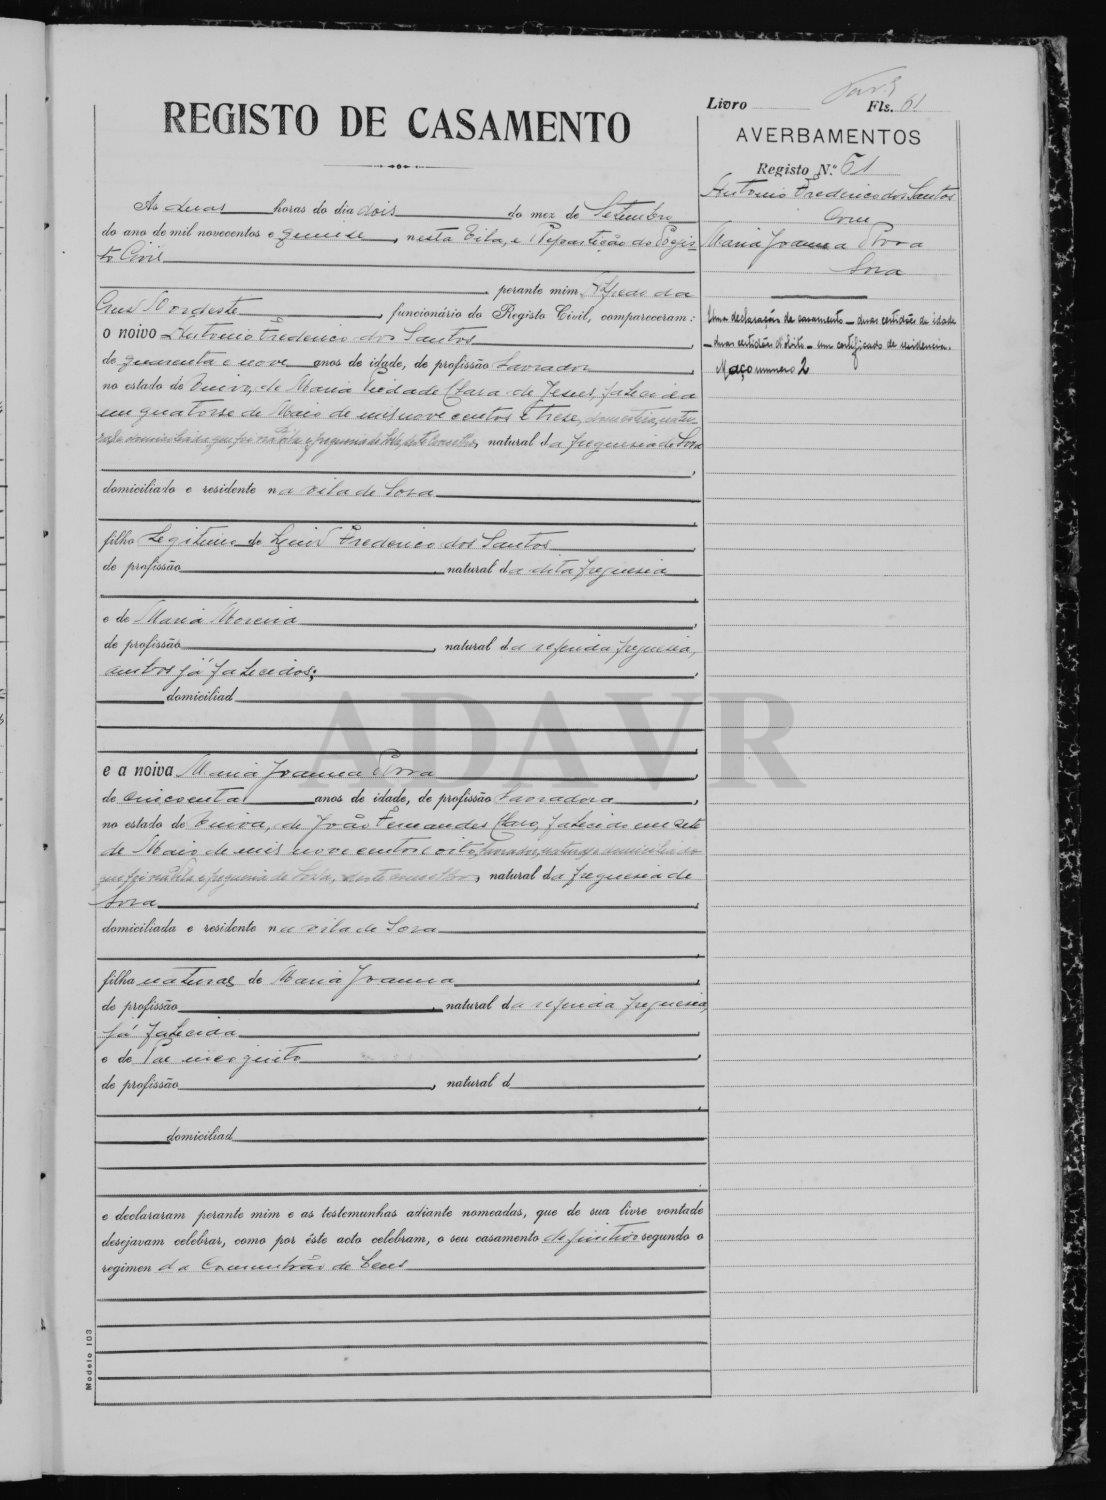 Livro Fls. 61
REGISTO DE CASAMENTO
AVERBAMENTOS
Registo N.º 61
Antonio Frederico dos Santos
com
Maria Joanna
Sosa
Uma declaração de casamento - duas certidões de idade
- duas certidões d'obito - um certificado de residencia.
Maço numero 2
As duas horas do dia dois do mez de Setembro
do ano de mil novecentos e quinse, nesta Vila, e Repartição do Regis-
to Civil
perante mim Alfredo da
Cruz Nordeste, funcionário do Registo Civil, compareceram:
o noivo Antonio Frederico dos Santos,
de quarenta e nove anos de idade, de profissão Lavrador,
no estado de Viuvo, de Maria Piedade Clara de Jesus, falecida
em quatorse de Maio de mil nove centos e trese, domestica, natu-
natural da freguesia de Sosa
domiciliado e residente na vila de Sosa
filho Legitimo de Luis Frederico dos Santos,
de profissão natural da dita freguesia
e de Maria Moreira,
de profissão, natural da referida freguesia,
ambos já falecidos;
domiciliad
e a noiva Maria Joanna,
de cincoenta anos de idade, de profissão Lavradora,
no estado de Viuva, de João Fernandes Claro, falecido em sete
de Maio de mil nove centos e oito, Lavrador, natural e domiciliado
que foi na Vila e freguesia de Sosa, deste concelho, natural da freguesia de
Sosa,
domiciliada e residente na vila de Sosa
filha natural de Maria Joanna,
de profissão, natural da referida freguesia,
já falecida
e de Pae incognito,
de profissão, natural d
domiciliad
e declararam perante mim e as testemunhas adiante nomeadas, que de sua livre vontade
desejavam celebrar, como por êste acto celebram, o seu casamento definitivo segundo o
regimen da Communhão de bens
Modelo 103
ADAVR